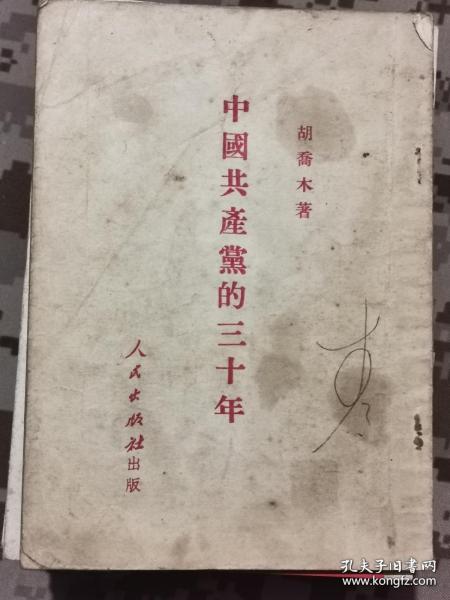 胡喬木著
中國共產黨的三十年
人民出版社出版
孔夫子旧书网
www.kongfz.com